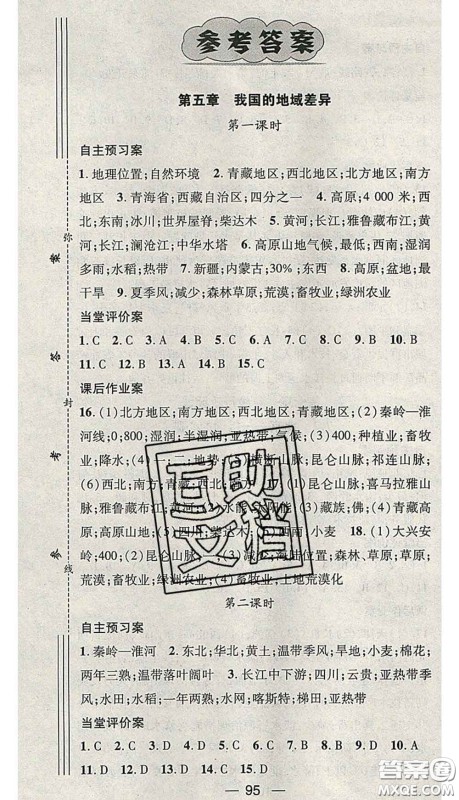 参考答案
第五章 我国的地域差异
第一课时
自主预习案
1. 地理位置;自然环境 2. 青藏地区;西北地区;北方地区;南方
地区 3. 青海省;西藏自治区;四分之一 4. 高原;4 000 米;西
北;东南;冰川;世界屋脊;柴达木 5. 黄河;长江;雅鲁藏布江;黄
河;长江;澜沧江;中华水塔 6. 高原山地气候,最低;西南;湿润
多雨;水稻;热带 7. 新疆;内蒙古;30%;东西 8. 高原;盆地;最
干旱 9. 夏季风;减少;森林草原;荒漠;畜牧业;绿洲农业
当堂评价案
1. C 2. C 3. A 4. B 5. C 6. A 7. B 8. C 9. B 10. B
11. C 12. B 13. A 14. B 15. C
课后作业案
16. (1)北方地区;南方地区;西北地区;青藏地区;(2)秦岭—淮
河线;0;800;湿润;半湿润;亚热带;气候;(3)400;种植业;畜牧
业;降水;(4)一;二;地势;(5)横断山脉;昆仑山脉;祁连山脉;
(6)西北;南方 17. (1)西北;青藏;昆仑山脉;喜马拉雅山
脉;雅鲁藏布
高原山地;(5)四川;柴达木;西南;小麦 18. (1)大兴安
岭;400;(2)昆仑山
荒漠;畜牧业;绿洲农业;(4)畜牧业;土地荒漠化
第二课时
自主预习案
1. 秦岭—淮河 2. 东北;华北;黄土;温带季风;旱地;小麦;棉花;
两年三熟;温带落叶阔叶 3. 长江中下游;四川;云贵;亚热带季
风;水田;水稻;一年两熟;水网;喀斯特;梯田;亚热带
当堂评价案
1. C 2. C 3. D 4. C 5. A 6. B 7. B 8. D 9. D 10. A
11. D 12. D 13. D 14. D 15. D
— 95 —
弥
封
线
答案圈
MXQE.COM